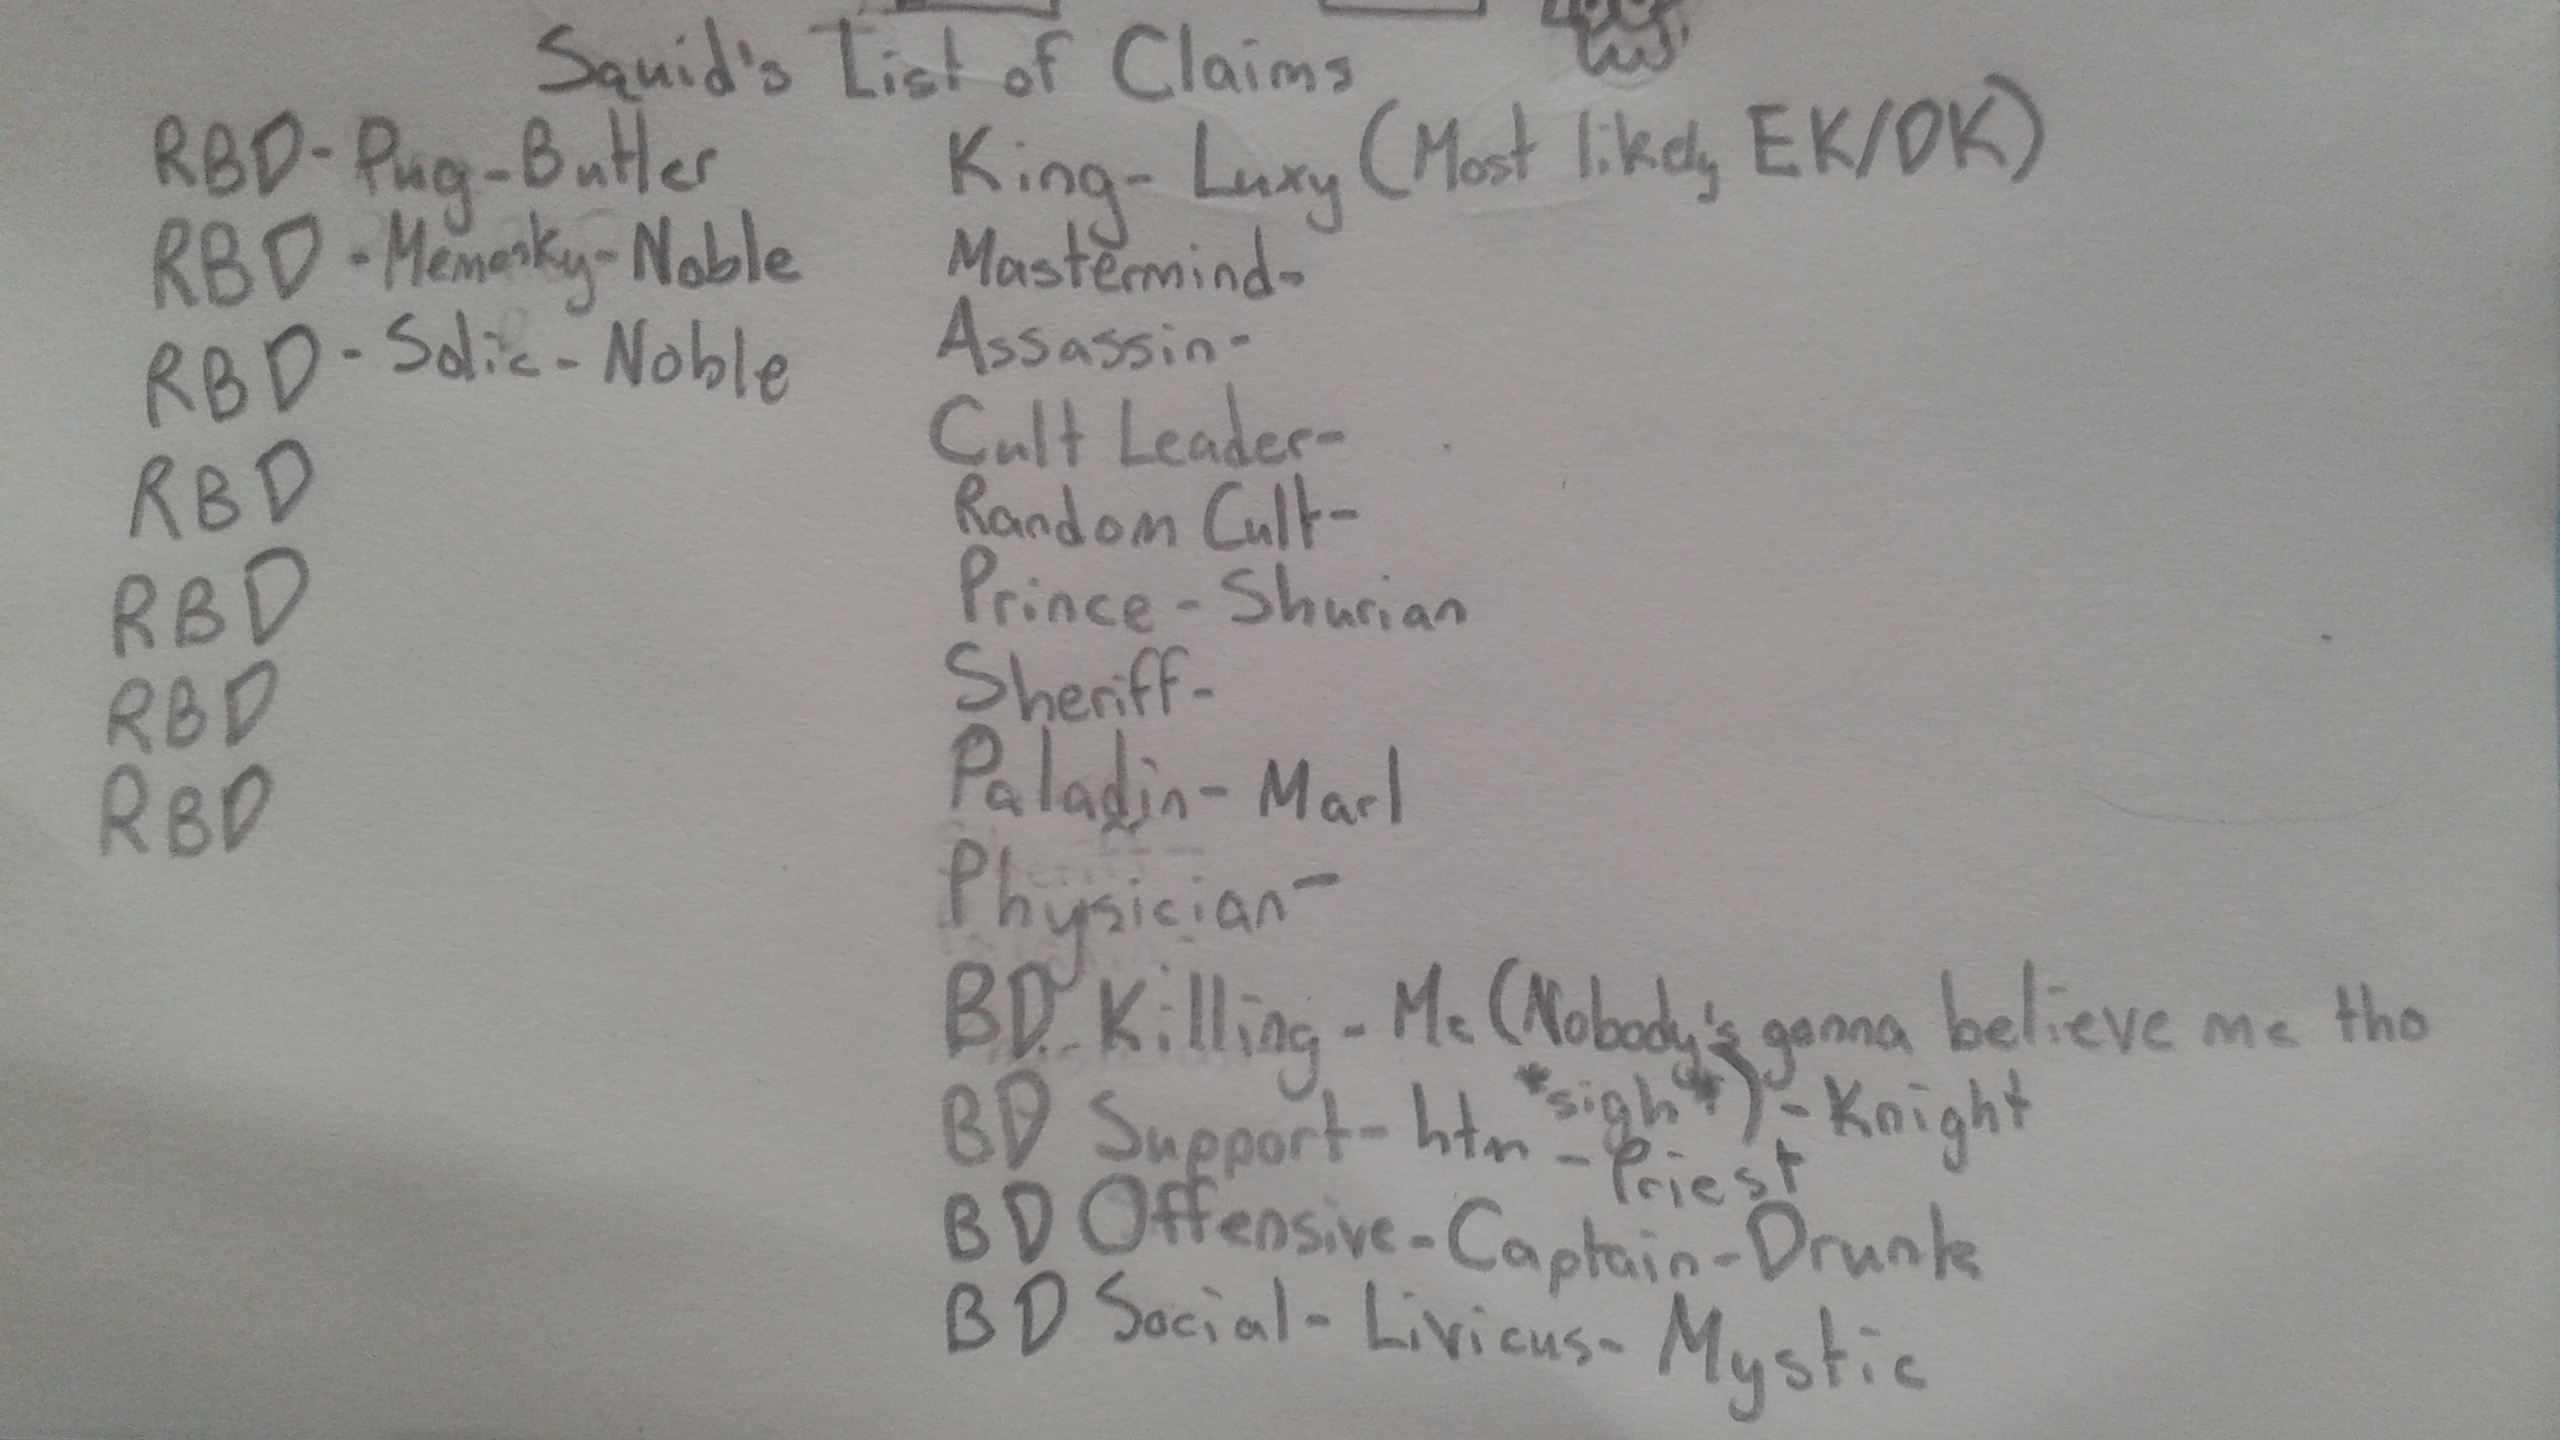 Squid's List of Claims
RBD-Pug-Butler
RBD-Memesky-Noble
RBD-Solic-Noble
RBD
RBD
RBD
RBD
King-Luxy (Most likely EK/DK)
Mastermind-
Assassin-
Cult Leader-
Random Cult-
Prince-Shurian
Sheriff-
Paladin-Marl
Physician-
BD Killing-Me (Nobody's gonna believe me tho
*sigh*)-Knight
BD Support-htm-Priest
BD Offensive-Captain-Drunk
BD Social-Livicus-Mystic